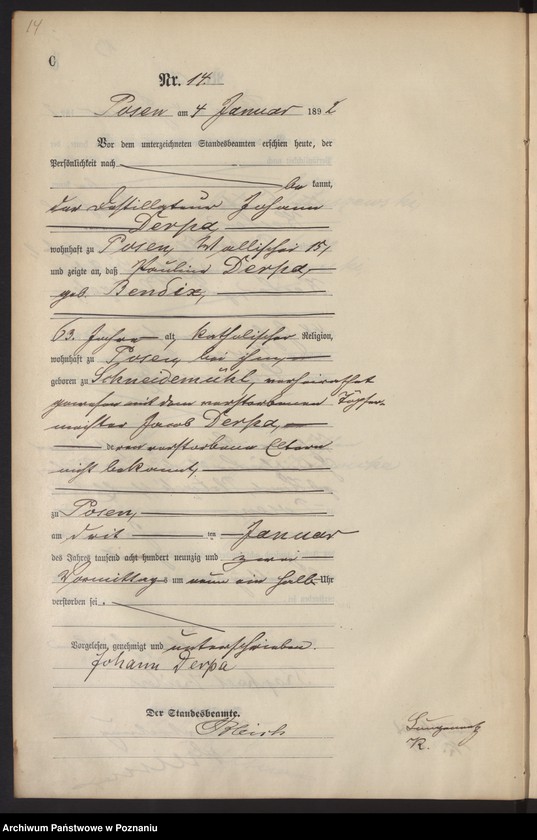 14
C
Nr. 14
Posen am 4 Januar 1892
Vor dem unterzeichneten Standesbeamten erschien heute, der
Persönlichkeit nach
be kannt,
der Destillateur Johann
Derpa
wohnhaft zu Posen, Wallischei 15,
und zeigte an, daß Pauline Derpa,
geb. Bendix,
63 Jahre alt, katholischer Religion,
wohnhaft zu Posen, bei ihm,
geboren zu Schneidemühl, verheirathet
gewesen mit dem verstorbenen Töpfer-
meister Jacob Derpa,
deren verstorbene Eltern
nicht bekannt,
zu Posen,
am dritten Januar
des Jahres tausend acht hundert neunzig und zwei
Vormittags um neun ein halb Uhr
verstorben sei.
Vorgelesen, genehmigt und unterschrieben.
Johann Derpa
Der Standesbeamte.
R.
Archiwum Państwowe w Poznaniu